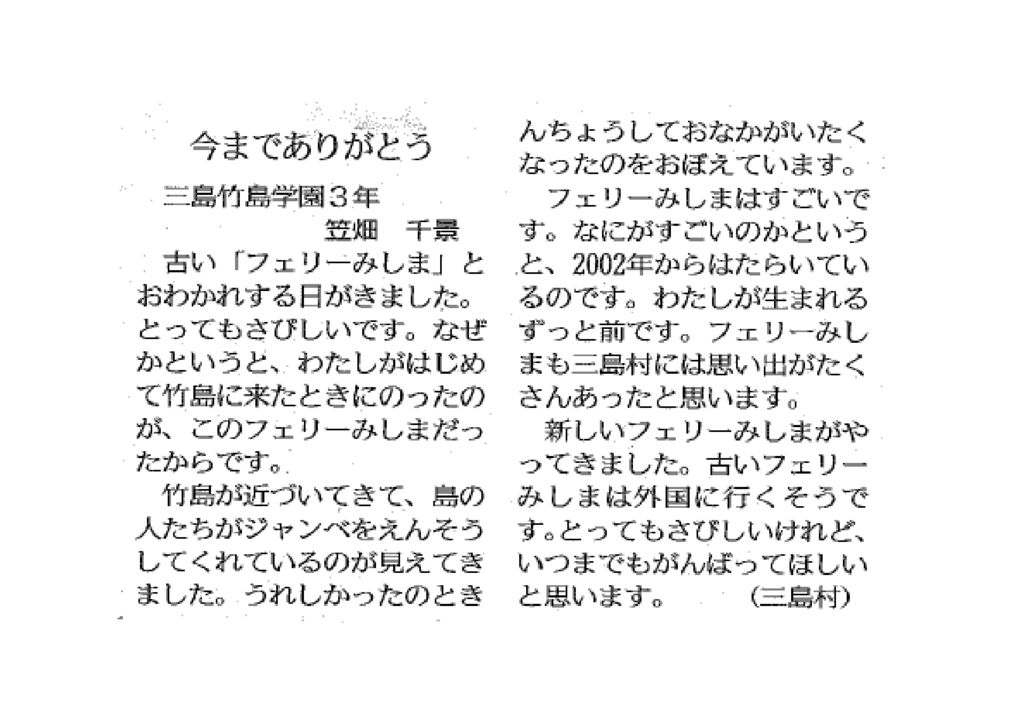 今までありがとう
三島竹島学園３年
笠畑　千景
古い「フェリーみしま」と
おわかれする日がきました。
とってもさびしいです。なぜ
かというと、わたしがはじめ
て竹島に来たときにのったの
が、このフェリーみしまだっ
たからです。
竹島が近づいてきて、島の
人たちがジャンベをえんそう
してくれているのが見えてき
ました。うれしかったのとき
んちょうしておなかがいたく
なったのをおぼえています。
フェリーみしまはすごいで
す。なにがすごいのかという
と、2002年からはたらいてい
るのです。わたしが生まれる
ずっと前です。フェリーみし
まも三島村には思い出がたく
さんあったと思います。
新しいフェリーみしまがや
ってきました。古いフェリー
みしまは外国に行くそうで
す。とってもさびしいけれど、
いつまでもがんばってほしい
と思います。　　　（三島村）